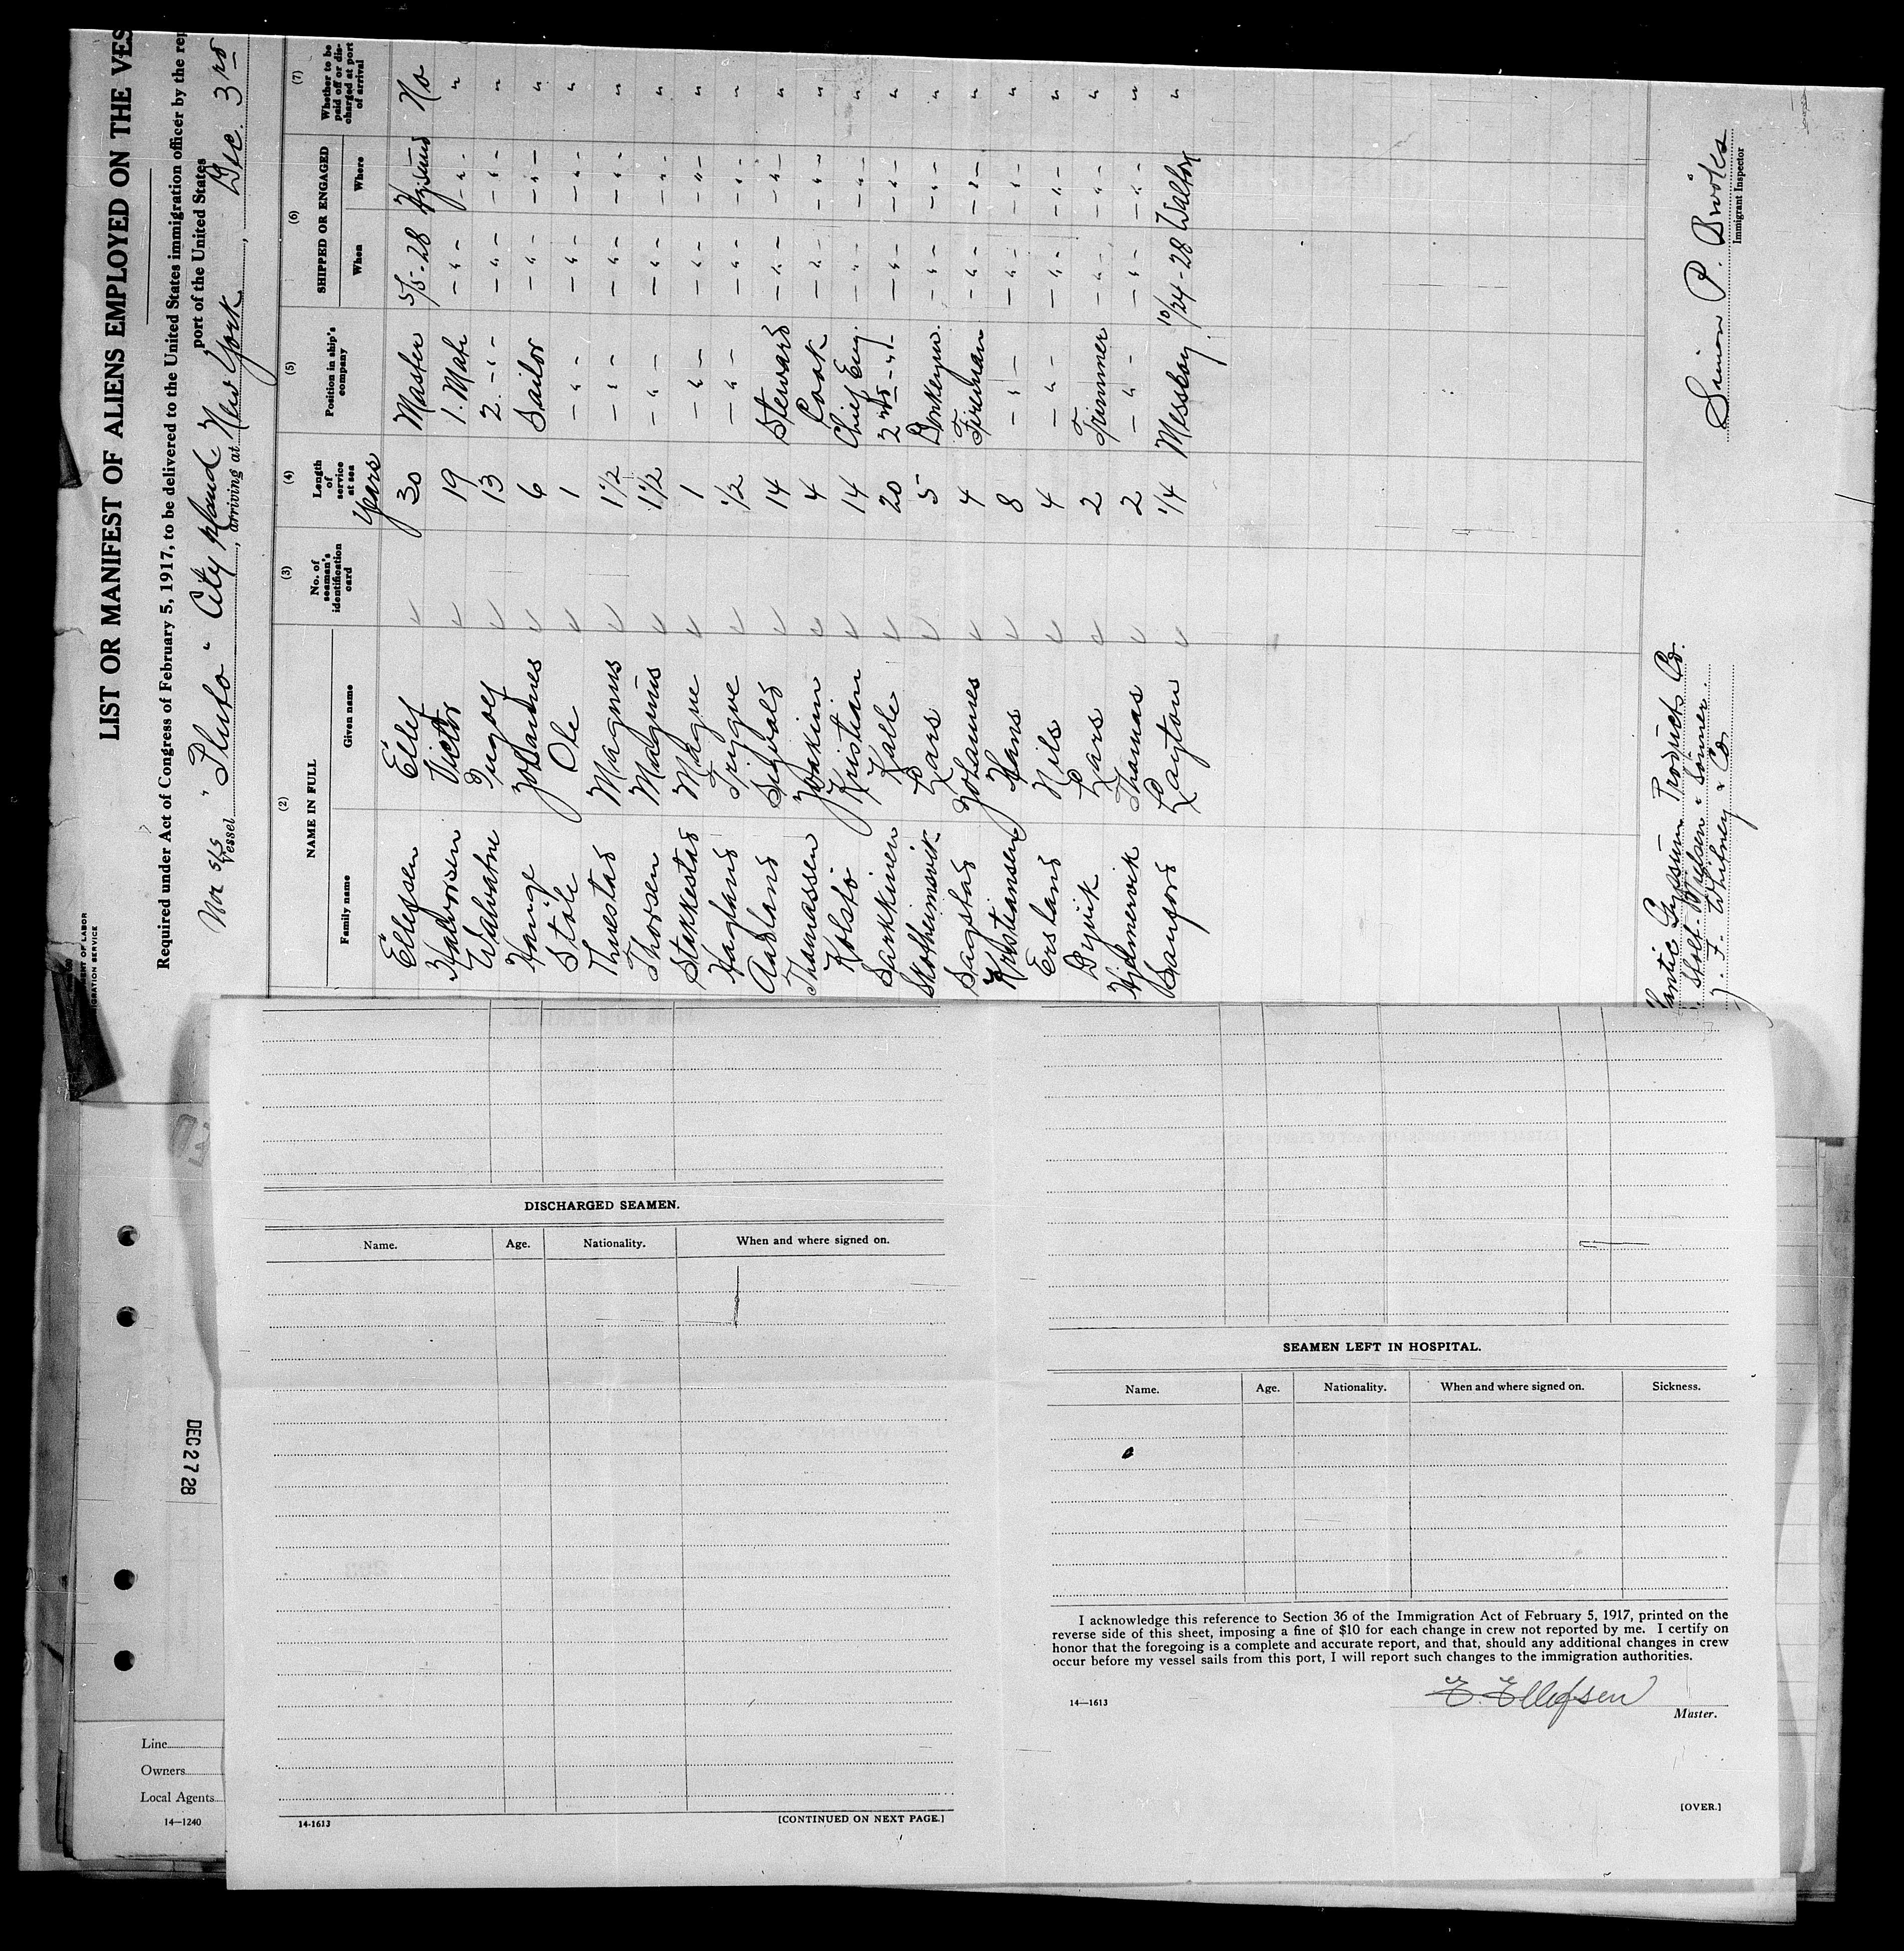 LIST OR MANIFEST OF ALIENS EMPLOYED ON THE VES
MENT OF LABOR
IGRATION SERVICE
Required under Act of Congress of February 5, 1917, to be delivered to the United States immigration officer by the rep
port of the United States
Nor S/S
Vessel "Pluto" City Island, arriving at New York, Dec. 3rd
(2) (3) (4) (5) (6) (7)
NAME IN FULL
Family name Given name
No. of seaman's identification card
Length of service at sea
Position in ship's company
SHIPPED OR ENGAGED
When Where
Whether to be paid off or discharged at port of arrival
Years
Ellefsen Ellef 30 Master 5/5-28 No
Halvorsen Victor 19 1. Mate -"- -"- "
Walvatne 13 2. -"- -"- -"- "
Hauge Johannes 6 Sailor -"- -"- "
Stöle Ole 1 -"- -"- -"- "
Thuestad Magnus 1 1/2 -"- -"- -"- "
Thorsen Magnus 1 1/2 -"- -"- -"- "
Stakkestad Magne 1 -"- -"- -"- "
Hagland Trygve 1/2 -"- -"- -"- "
Aadland Sigvald 14 Steward -"- -"- "
Thomassen Joakim 4 Cook -"- -"- "
Kolstö Kristian 14 Chief Eng. -"- -"- "
Sarkkinen Kalle 20 2nd -"- -"- -"- "
Skotheimsvik Lars 5 Donkeym. -"- -"- "
Sagstad Johannes 4 Fireman -"- -"- "
Kristiansen Hans 8 -"- -"- -"- "
Ersland Nils 4 -"- -"- -"- "
Dyvik Lars 2 Trimmer -"- -"- "
Hjelmervik Thomas 2 -"- -"- -"- "
Sanford Layton 1/4 Messboy. 10/24-28 Walton "
lantic Gypsum Products Co.
Stolt-Nielsen & Sönner.
J. F. Whitney & Co
Simon P. Brooks
Immigrant Inspector
DISCHARGED SEAMEN.
Name. Age. Nationality. When and where signed on.
14-1613 [CONTINUED ON NEXT PAGE.]
SEAMEN LEFT IN HOSPITAL.
Name. Age. Nationality. When and where signed on. Sickness.
I acknowledge this reference to Section 36 of the Immigration Act of February 5, 1917, printed on the
reverse side of this sheet, imposing a fine of $10 for each change in crew not reported by me. I certify on
honor that the foregoing is a complete and accurate report, and that, should any additional changes in crew
occur before my vessel sails from this port, I will report such changes to the immigration authorities.
E. Ellefsen
14—1613 Master.
[OVER.]
DEC 27 28
Line
Owners
Local Agents
14—1240